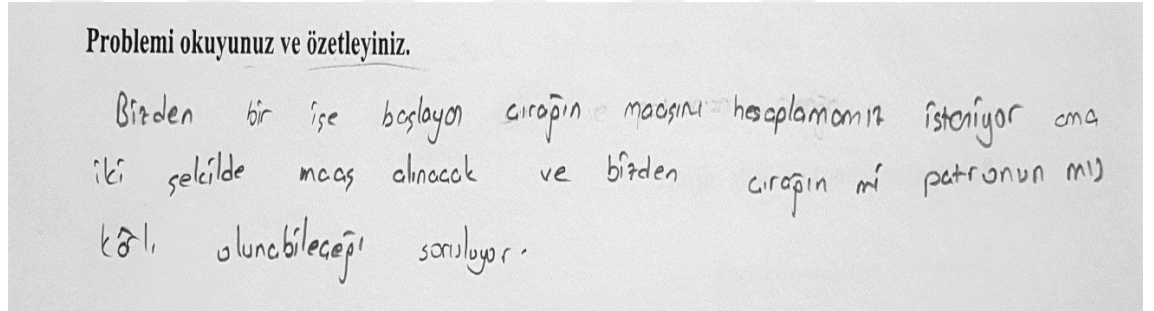 Problemi okuyunuz ve özetleyiniz.
Bizden bir işe başlayan çırağın maaşını hesaplamamız isteniyor ama
iki şekilde maaş alınacak ve bizden çırağın mı patronun mu
kârlı olunabileceği soruluyor.